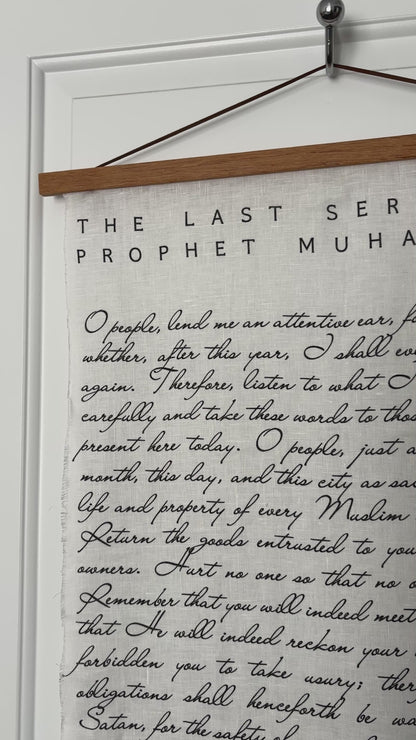 THE LAST SER
PROPHET MUHA
O people, lend me an attentive ear, f
whether, after this year, I shall ev
again. Therefore, listen to what I
carefully and take these words to thos
present here today. O people, just a
month, this day, and this city as sac
life and property of every Muslim
Return the goods entrusted to you
owners. Hurt no one so that no o
Remember that you will indeed meet
that He will indeed reckon your
forbidden you to take usury; ther
obligations shall henceforth be wa
Satan, for the safety of